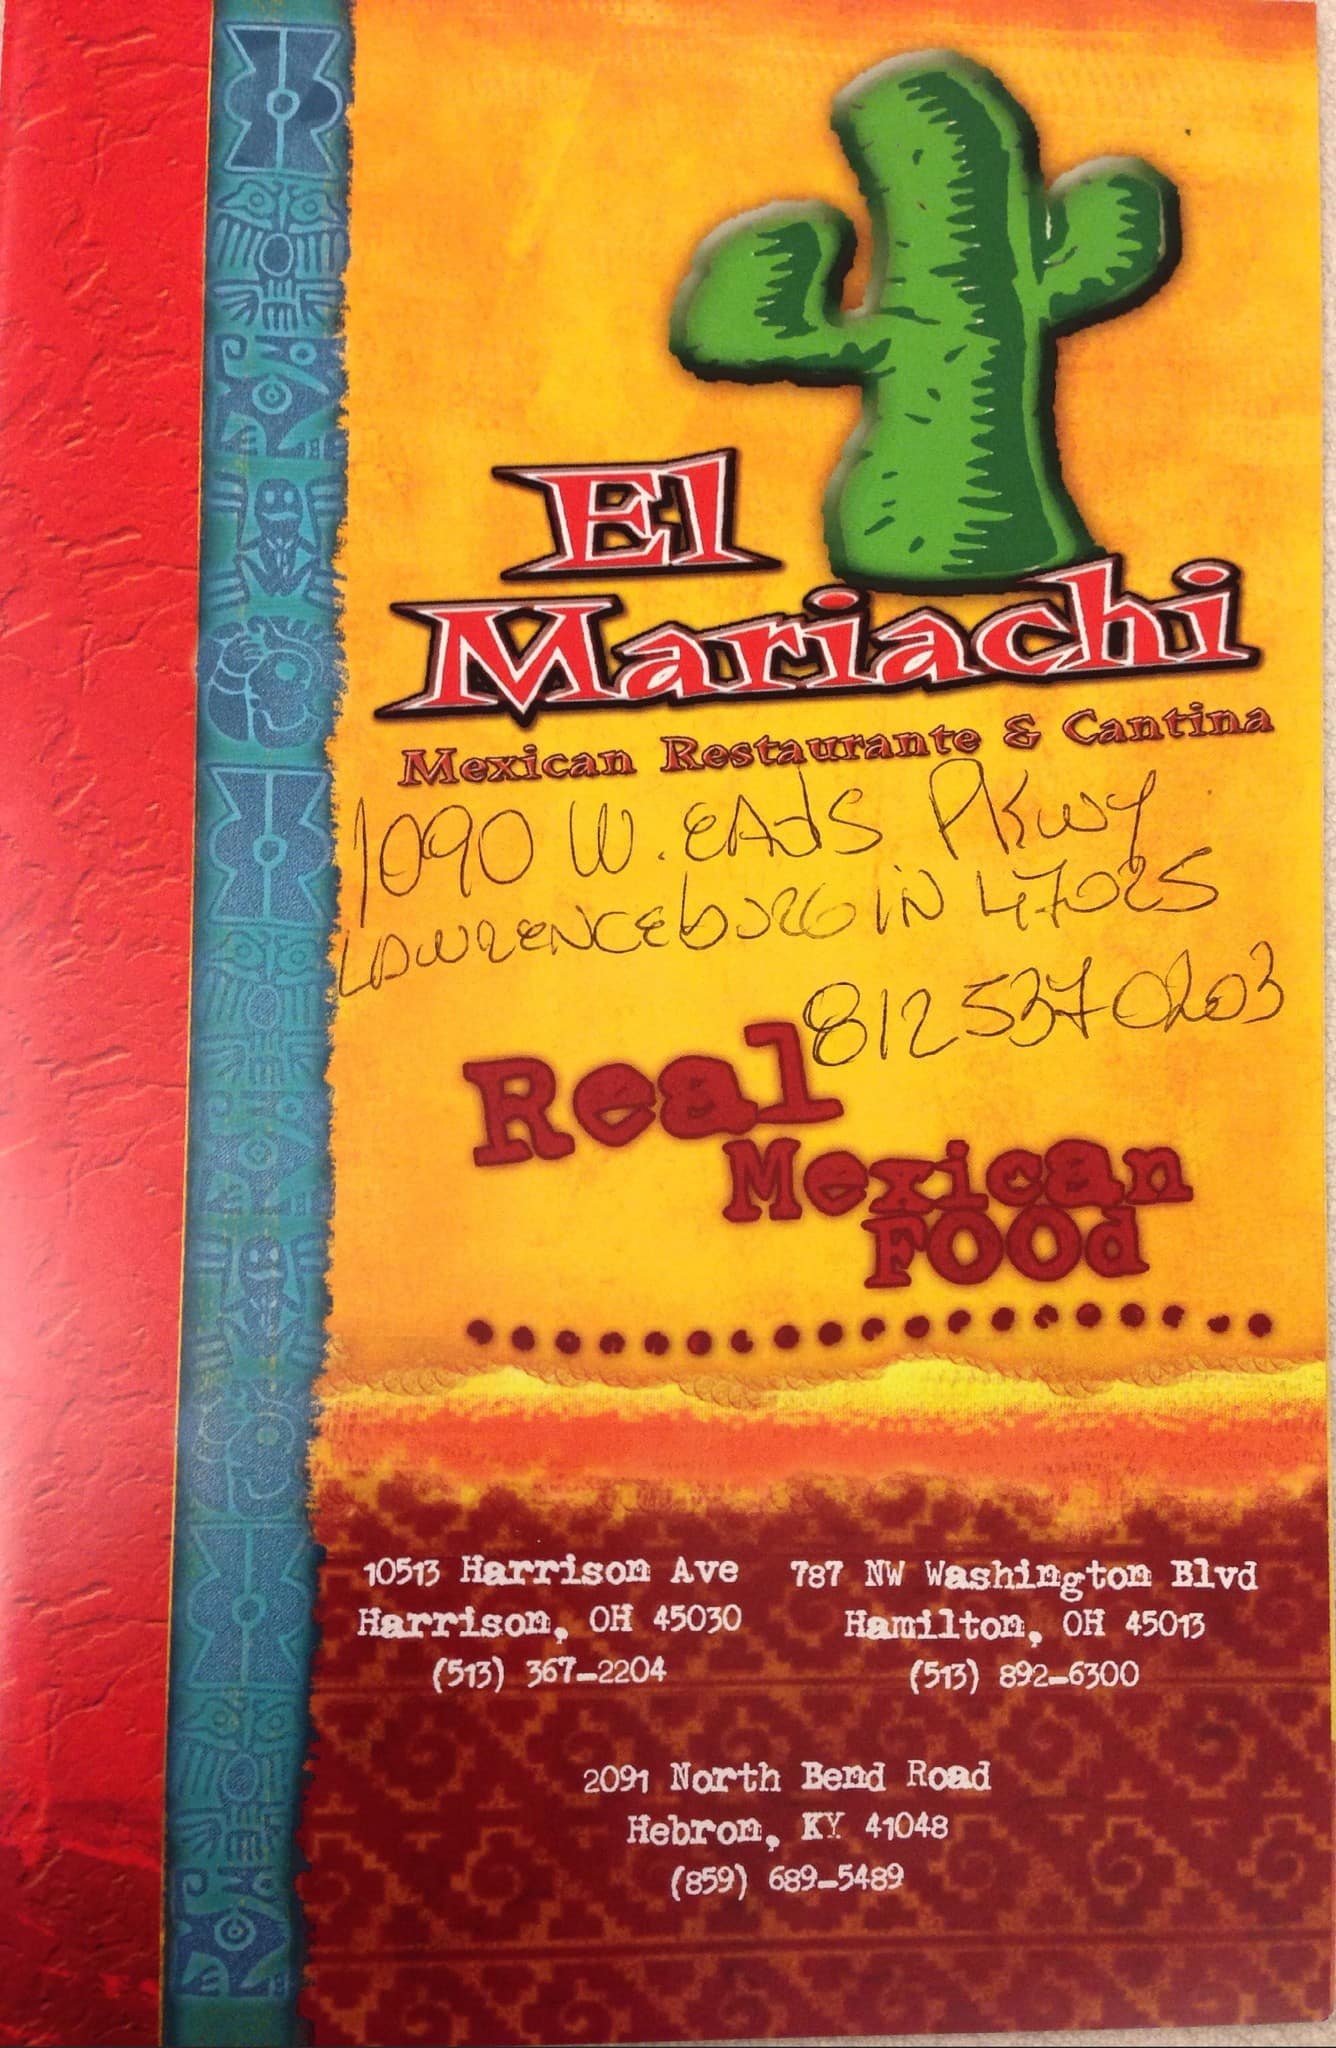 El
Mariachi
Mexican Restaurante & Cantina
1090 W. EAdS PKwy
LAWRENCEbURG IN 47025
812 537 0203
Real
Mexican
FOOd
10513 Harrison Ave
Harrison, OH 45030
(513) 367-2204
787 NW Washington Blvd
Hamilton, OH 45013
(513) 892-6300
2091 North Bend Road
Hebron, KY 41048
(859) 689-5489